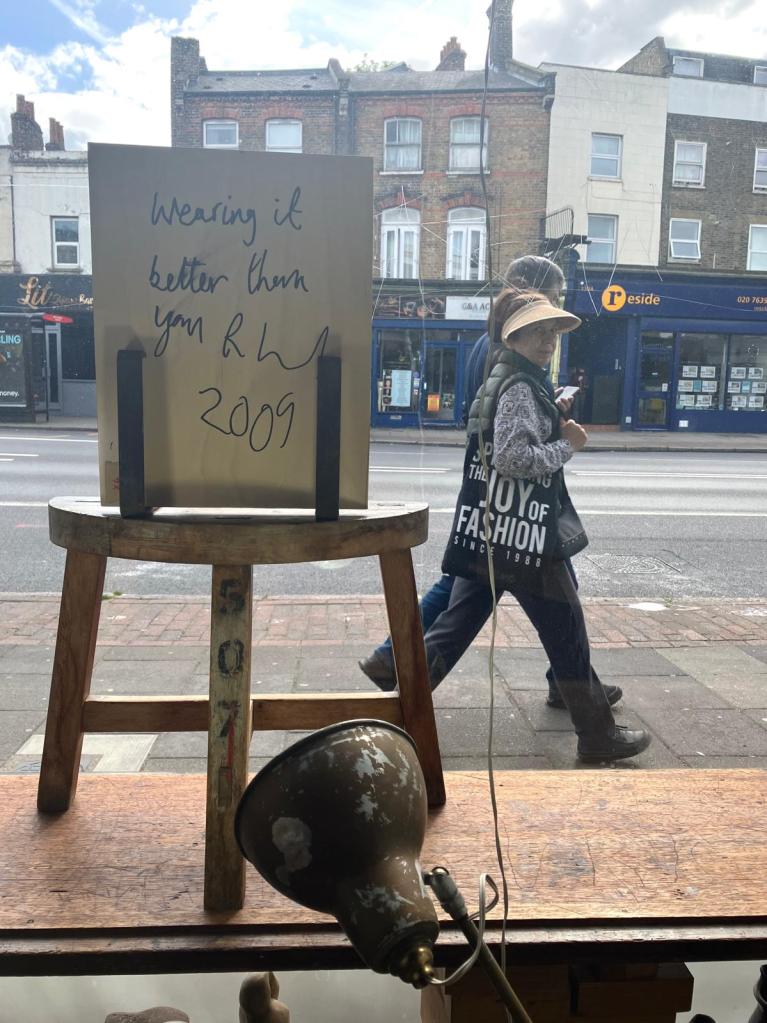 Wearing it
better then
you RW
2009
Lit
CLING
money.
G&A AC
reside
020 763
SP
THE NG
JOY OF
FASHION
SINCE 1988
5
0
7
1